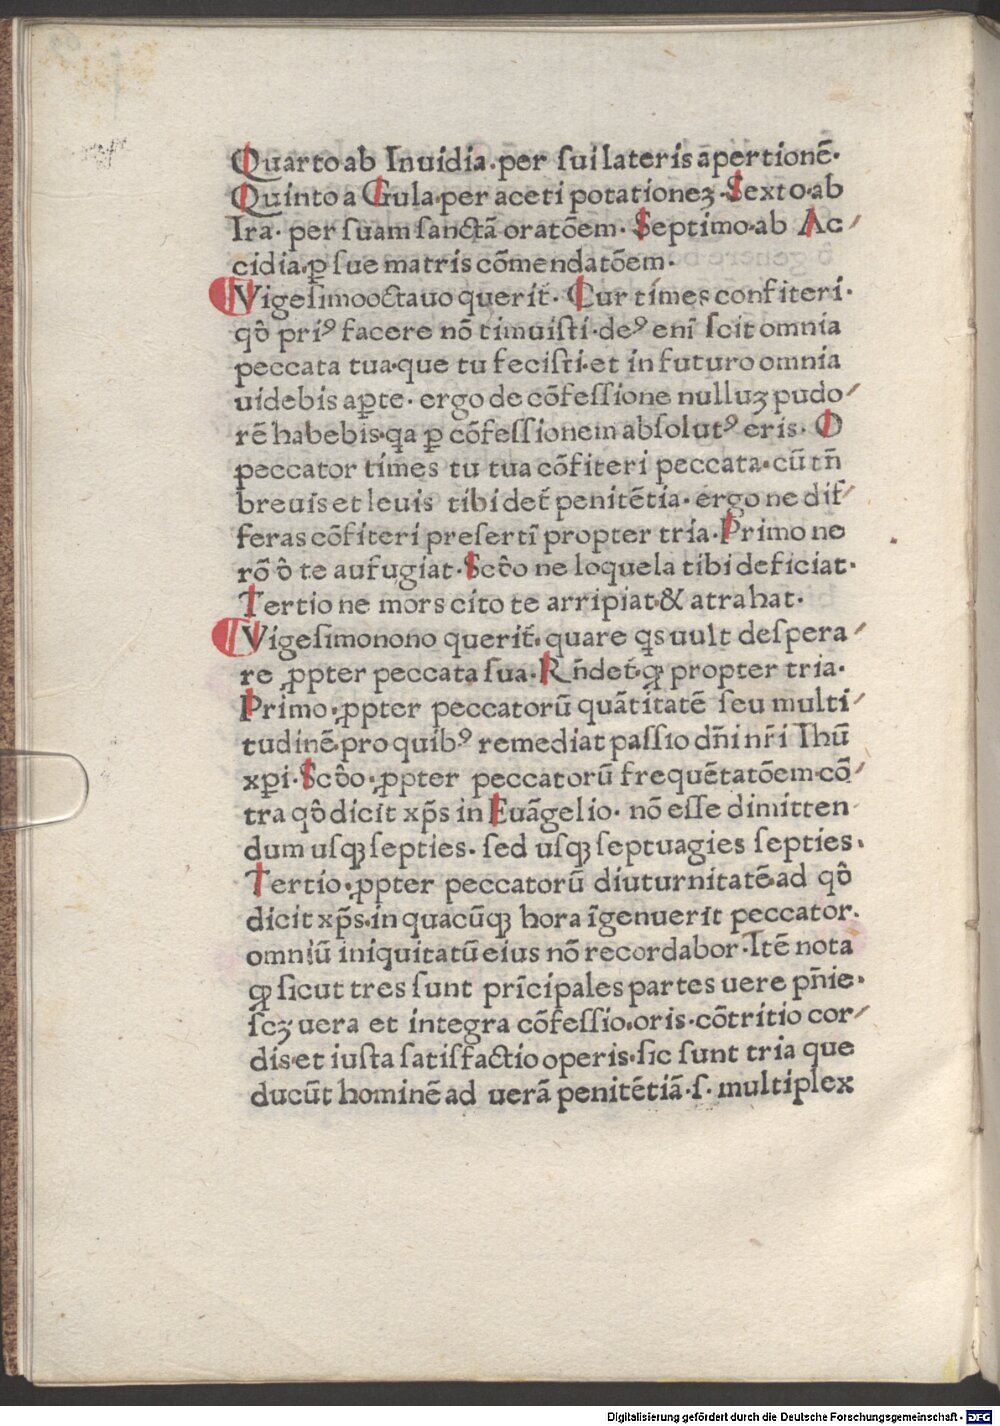 Quarto ab Inuidia·per ſui lateris apertionē·
Quinto a Gula·per aceti potationeꝫ·Sexto·ab
Ira·per ſuam ſanctā oratōem·Septimo·ab Ac⸗
cidia·ꝑ ſue matris cōmendatōem·
Vigeſimooctauo querit̄·Cur times confiteri·
qd̄ priꝰ facere nō timuiſti·deꝰ enī ſcit omnia
peccata tua·que tu feciſti·et in futuro omnia
uidebis aꝑte·ergo de cōfeſſione nulluꝫ pudo⸗
rē habebis·qa ꝑ cōfeſſionem abſolutꝰ eris·O
peccator times tu tua cōfiteri peccata·cū tn̄
breuis et leuis tibi det̄ penitētia·ergo ne dif⸗
feras cōfiteri preſertī propter tria·Primo ne
rō ô te aufugiat·Scd̄o ne loquela tibi deficiat·
Tertio ne mors cito te arripiat·& atrahat·
Vigeſimonono querit̄·quare qs uult deſpera⸗
re ꝓpter peccata ſua·Rn̄det̄·ꝙ propter tria·
Primo·ꝓpter peccatorū quātitatē ſeu multi⸗
tudinē·pro quibꝰ remediat paſſio dn̄i nr̄i Ihū
xp̄i·Scd̄o·ꝓpter peccatorū frequētatōem·cō⸗
tra qd̄ dicit xp̄s in Euāgelio·nō eſſe dimitten
dum uſqꝫ ſepties·ſed uſqꝫ ſeptuagies ſepties·
Tertio·ꝓpter peccatorū diuturnitatē·ad qd̄
dicit xp̄s·in quacūqꝫ hora īgenuerit peccator·
omniū iniquitatū eius nō recordabor·Itē nota
ꝙ ſicut tres ſunt prīcipales partes uere pn̄ie·
ſcꝫ uera et integra cōfeſſio·oris·cōtritio cor⸗
dis·et iuſta ſatiſfactio operis·ſic ſunt tria que
ducūt hominē ad uerā penitētiā·ſ·multiplex
Digitalisierung gefördert durch die Deutsche Forschungsgemeinschaft - DFG